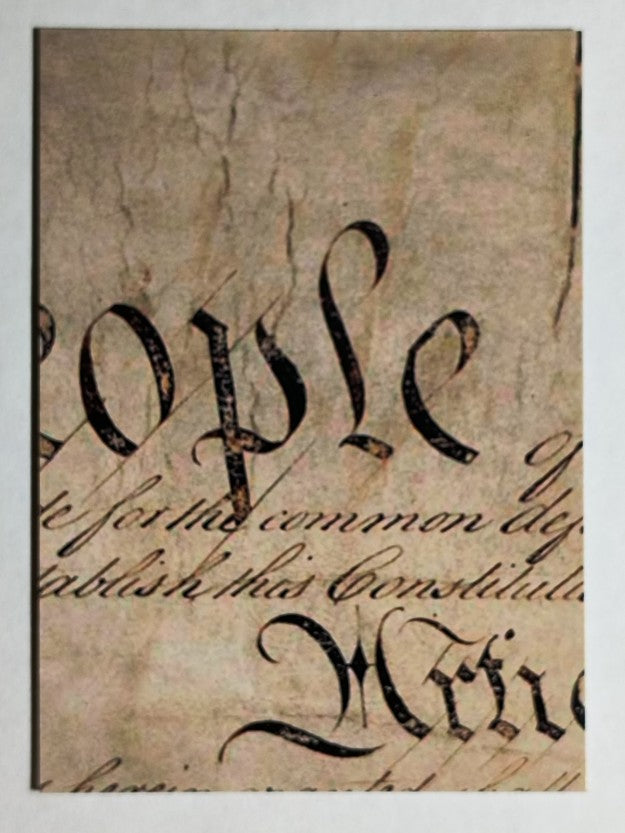 eople
of
de for the common def
tablish this Constituti
Artic
herein granted shall